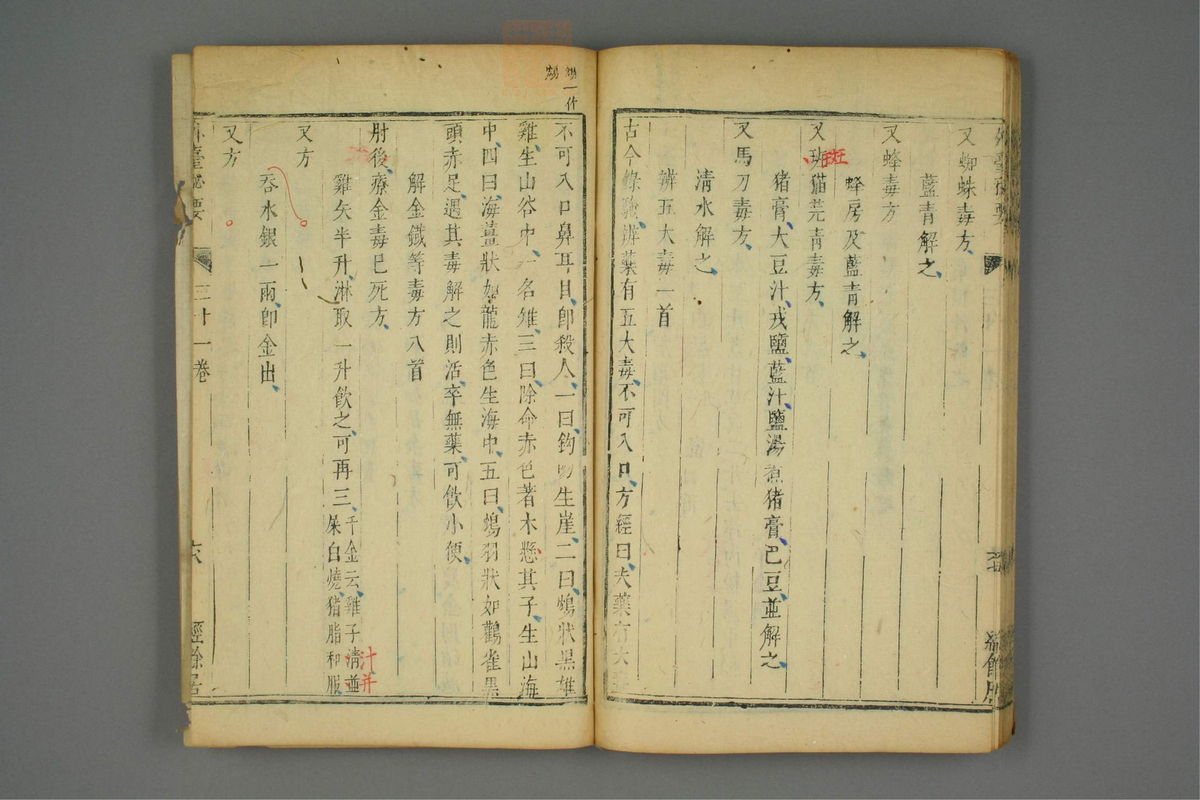 又蜘蛛毒方
藍青解之
又蜂毒方
蜂房及藍青解之
又斑猫芫青毒方
猪膏大豆汁戎鹽藍汁鹽湯煮猪膏巴豆並解之
又馬刀毒方
清水解之
辨五大毒一首
古今錄驗辨藥有五大毒不可入口方經曰夫藥有大毒
不可入口鼻耳目即殺人一曰鈎吻生崖二曰鴆狀黑雄
雞生山谷中一名雉三曰陰命赤色著木懸其子生山海
中四曰海薑狀如龍赤色生海中五曰鴆羽狀如鸛雀黑
頭赤足遇其毒解之則活卒無藥可飲小便
解金鐵等毒方八首
肘後療金毒巳死方
雞矢半升淋取一升飲之可再三
千金云雞子清並
屎白燒猪脂和服
汁并
又方
吞水銀一兩即金出
又方
外臺秘要
三十一卷
六
經餘居